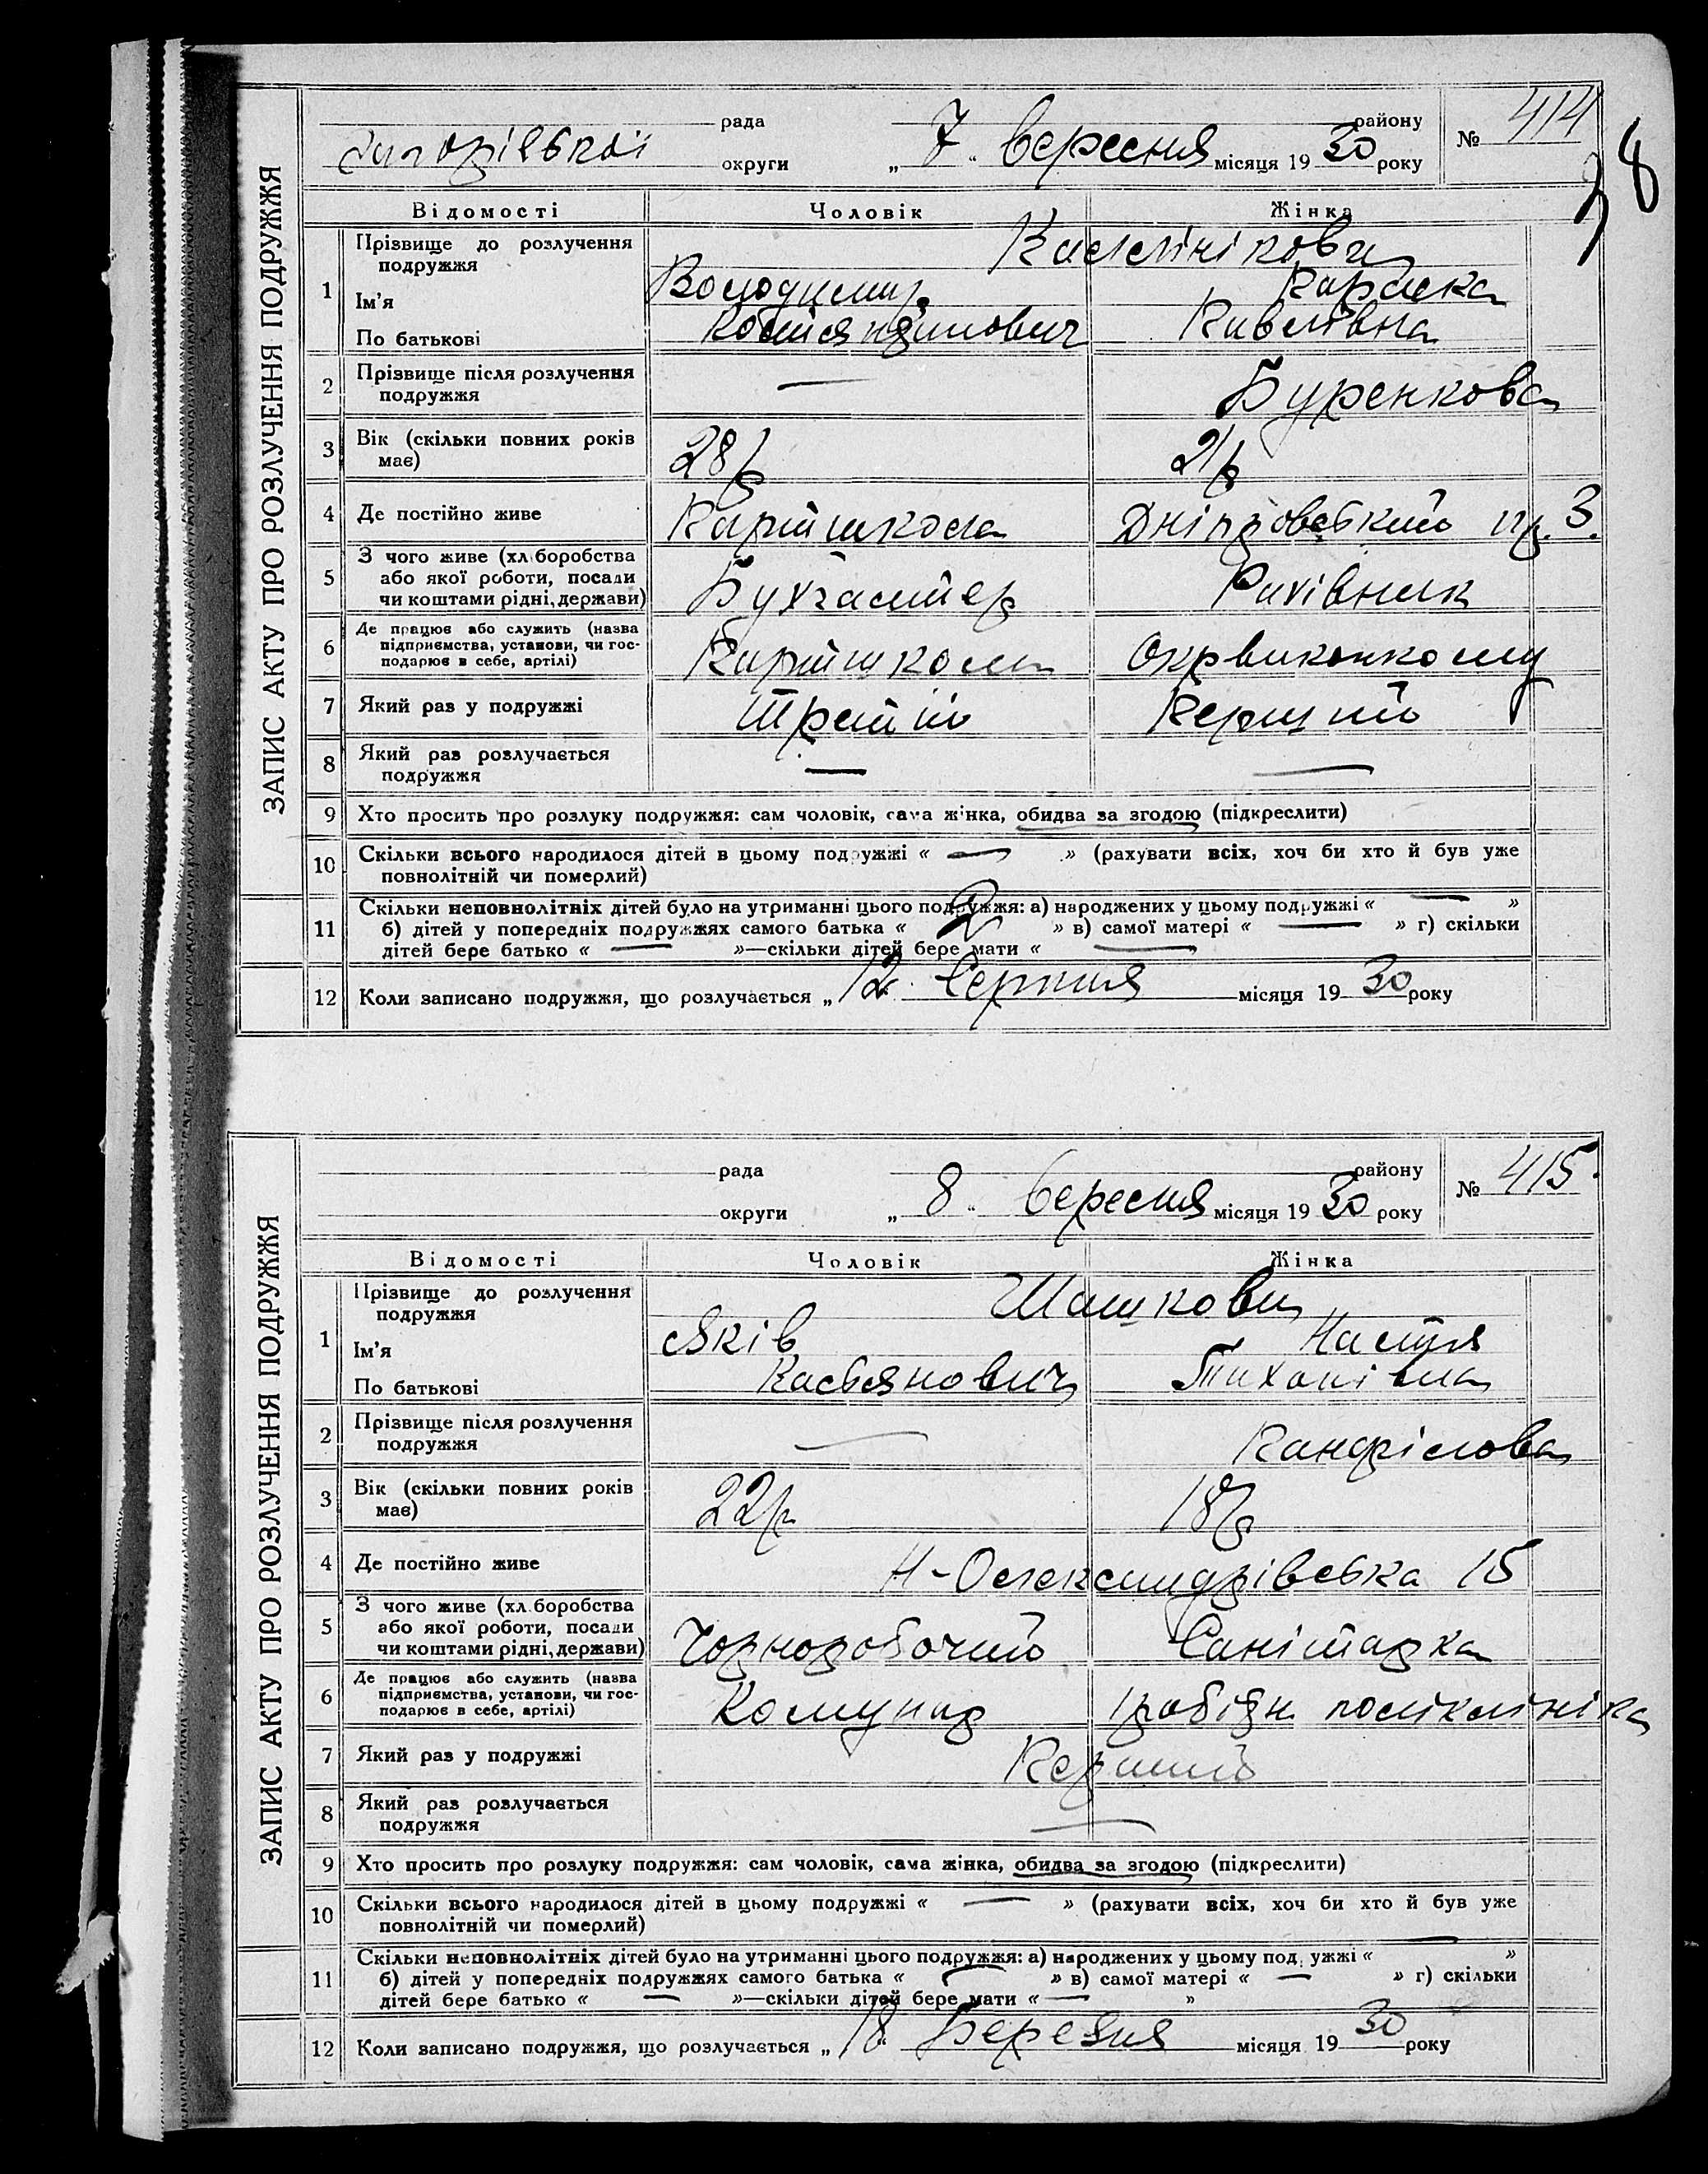 ЗАПИС АКТУ ПРО РОЗЛУЧЕННЯ ПОДРУЖЖЯ
рада району № 414
округи „ 7 “ вересня місяця 1930 року
38
Відомості Чоловік Жінка
1 Прізвище до розлучення
подружжя
Ім'я Володимир
По батькові Павлівна
2 Прізвище після розлучення — Буренкова
подружжя
3 Вік (скільки повних років 28 р 21 р
має)
4 Де постійно живе Дніпровський пр. 3.
5 З чого живе (хліборобства
або якої роботи, посади Бухгалтер Рахівник
чи коштами рідні, держави)
6 Де працює або служить (назва
підприємства, установи, чи гос- Окрвиконкому
подарює в себе, артілі)
7 Який раз у подружжі Третій Перший
8 Який раз розлучається — —
подружжя
9 Хто просить про розлуку подружжя: сам чоловік, сама жінка, обидва за згодою (підкреслити)
10 Скільки всього народилося дітей в цьому подружжі « — » (рахувати всіх, хоч би хто й був уже
повнолітній чи померлий)
11 Скільки неповнолітніх дітей було на утриманні цього подружжя: а) народжених у цьому подружжі « — »
б) дітей у попередніх подружжях самого батька « 2 » в) самої матері « — » г) скільки
дітей бере батько « — »—скільки дітей бере мати « —
12 Коли записано подружжя, що розлучається „ 12 “ Серпня місяця 1930 року
ЗАПИС АКТУ ПРО РОЗЛУЧЕННЯ ПОДРУЖЖЯ
рада району № 415.
округи „ 8 “ вересня місяця 1930 року
Відомості Чоловік Жінка
1 Прізвище до розлучення Шашкови
подружжя
Ім'я Яків Настя
По батькові Касьянович Тихонівна
2 Прізвище після розлучення —
подружжя
3 Вік (скільки повних років 22 р 18 р
має)
4 Де постійно живе Н-Олександрівська 15
5 З чого живе (хліборобства
або якої роботи, посади Чорноробочий Санітарка
чи коштами рідні, держави)
6 Де працює або служить (назва
підприємства, установи, чи гос- Комунар поліклініка
подарює в себе, артілі)
7 Який раз у подружжі Перший
8 Який раз розлучається —
подружжя
9 Хто просить про розлуку подружжя: сам чоловік, сама жінка, обидва за згодою (підкреслити)
10 Скільки всього народилося дітей в цьому подружжі « — » (рахувати всіх, хоч би хто й був уже
повнолітній чи померлий)
11 Скільки неповнолітніх дітей було на утриманні цього подружжя: а) народжених у цьому подружжі « — »
б) дітей у попередніх подружжях самого батька « — » в) самої матері « — » г) скільки
дітей бере батько « — »—скільки дітей бере мати « — »
12 Коли записано подружжя, що розлучається „ 18 “ Березня місяця 1930 року